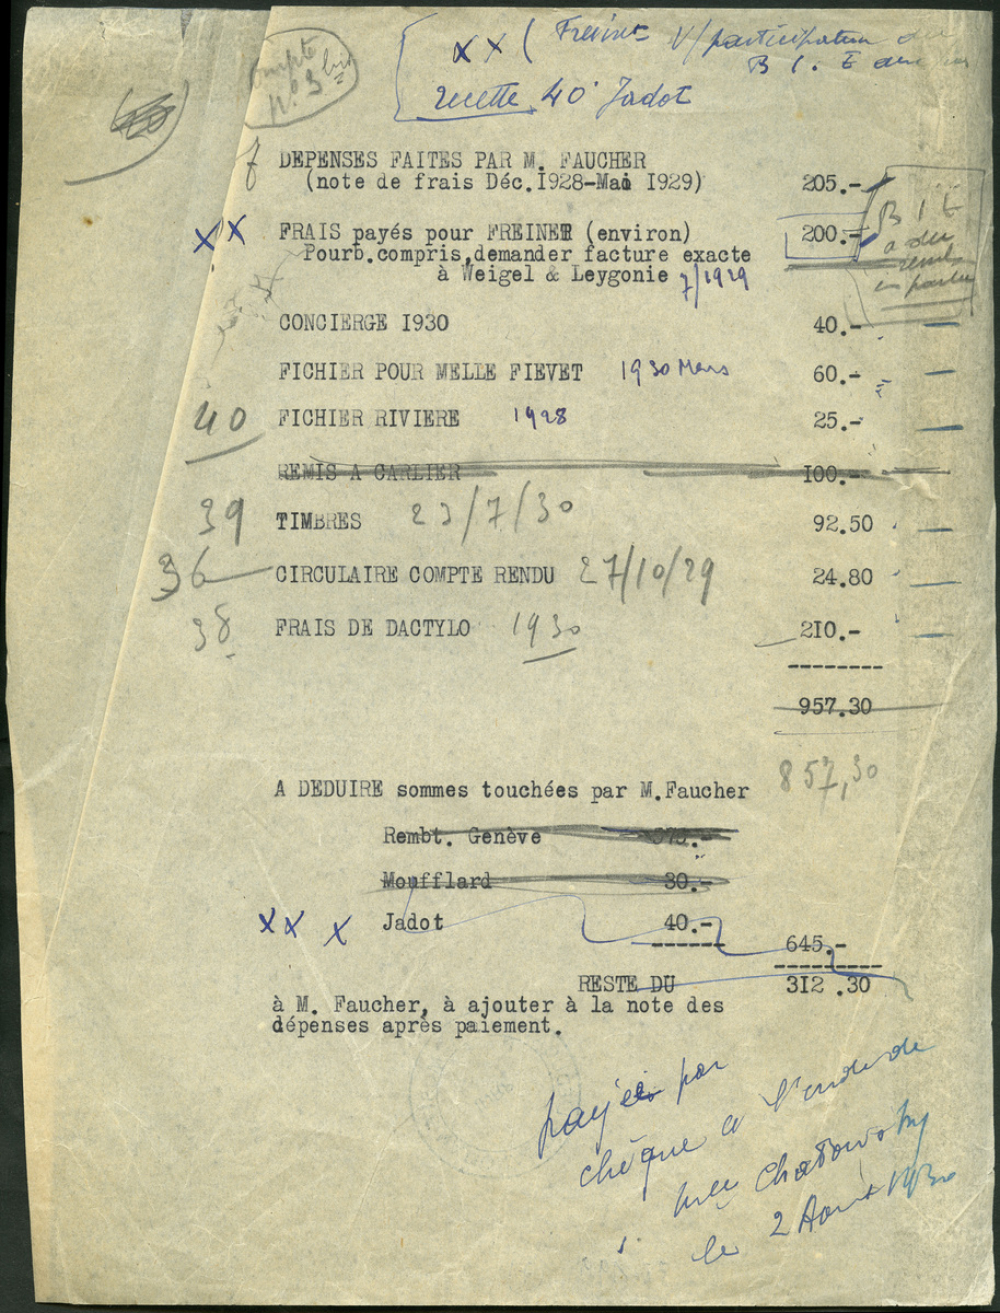 compte
n° 3 bis
XX ( Freinet V/ participation du
B I. E
recette 40 Jadot
DEPENSES FAITES PAR M. FAUCHER
(note de frais Déc.I928-Mai I929) 205.-
XX FRAIS payés pour FREINET (environ) 200.-
Pourb.compris,demander facture exacte
à Weigel & Leygonie 7/1929
B I E
a du
en partie
CONCIERGE I930 40.-
FICHIER POUR MELLE FIEVET 1930 Mars 60.-
40 FICHIER RIVIERE 1928 25.-
REMIS A CARLIER I00.-
39 TIMBRES 23/7/30 92.50
36 CIRCULAIRE COMPTE RENDU 27/10/29 24.80
38 FRAIS DE DACTYLO 1930 2I0.-
957.30
857,30
A DEDUIRE sommes touchées par M.Faucher
Rembt. Genève 575.-
Moufflard 30.-
XX X Jadot 40.-
645.-
RESTE DU 3I2.30
à M. Faucher, à ajouter à la note des
dépenses après paiement.
payés par
chèque a l'ordre de
Mlle Chatowsky
le 2 Aout 1930